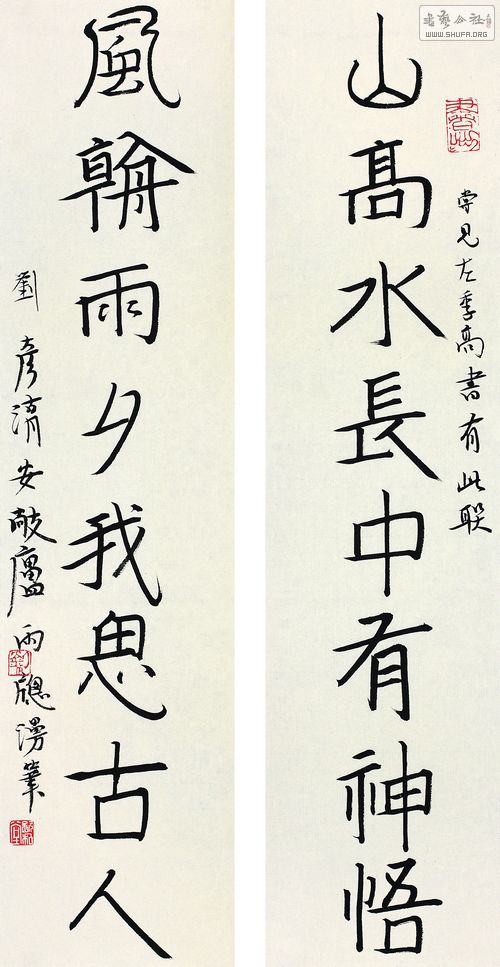 書藝公社
WWW.SHUFA.ORG
山髙水長中有神悟
嘗見左季高書有此聯
風朝雨夕我思古人
劉彦清安敲廬雨牕漫筆